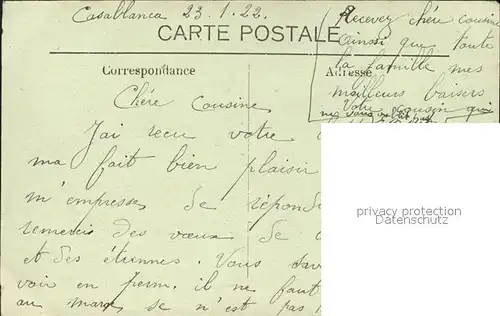 Casablanca 23.1.22.
CARTE POSTALE
Correspondance
Adresse
Recevez chère cousine
ainsi que toute
la famille mes
meilleurs baisers
Votre cousin qui
ne vous oublie pas
Chére Cousine
J'ai recu votre
ma fait bien plaisir
m'empresse de répond
remercis des vœux de
et des étrennes. Vous sav
voir en perm. il ne faut
au maroc se n'est pas
privacy protection